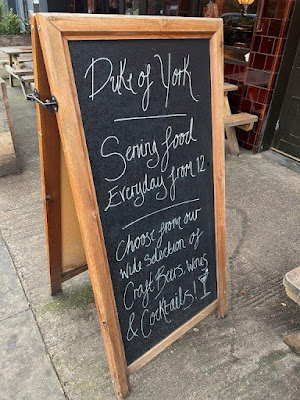 Duke of York
Serving food
Everyday from 12.
Choose from our
wide selection of
Craft Beers, Wines
& Cocktails!